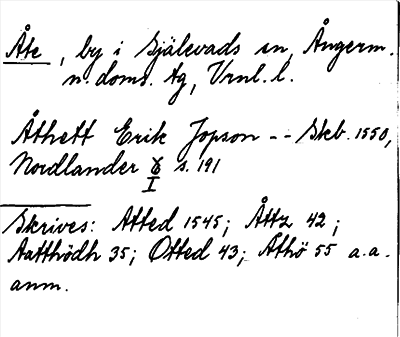 Åte, by i Själevads sn, Ångerm.
n. doms. tg, Vrnl. l.
Åthett Erik Jopson -- Skb. 1550,
Nordlander
I s. 191
Skrives: Atted 1545; Åttz 42;
Aatthödh 35; Otted 43; Åthö 55 a.a.
anm.